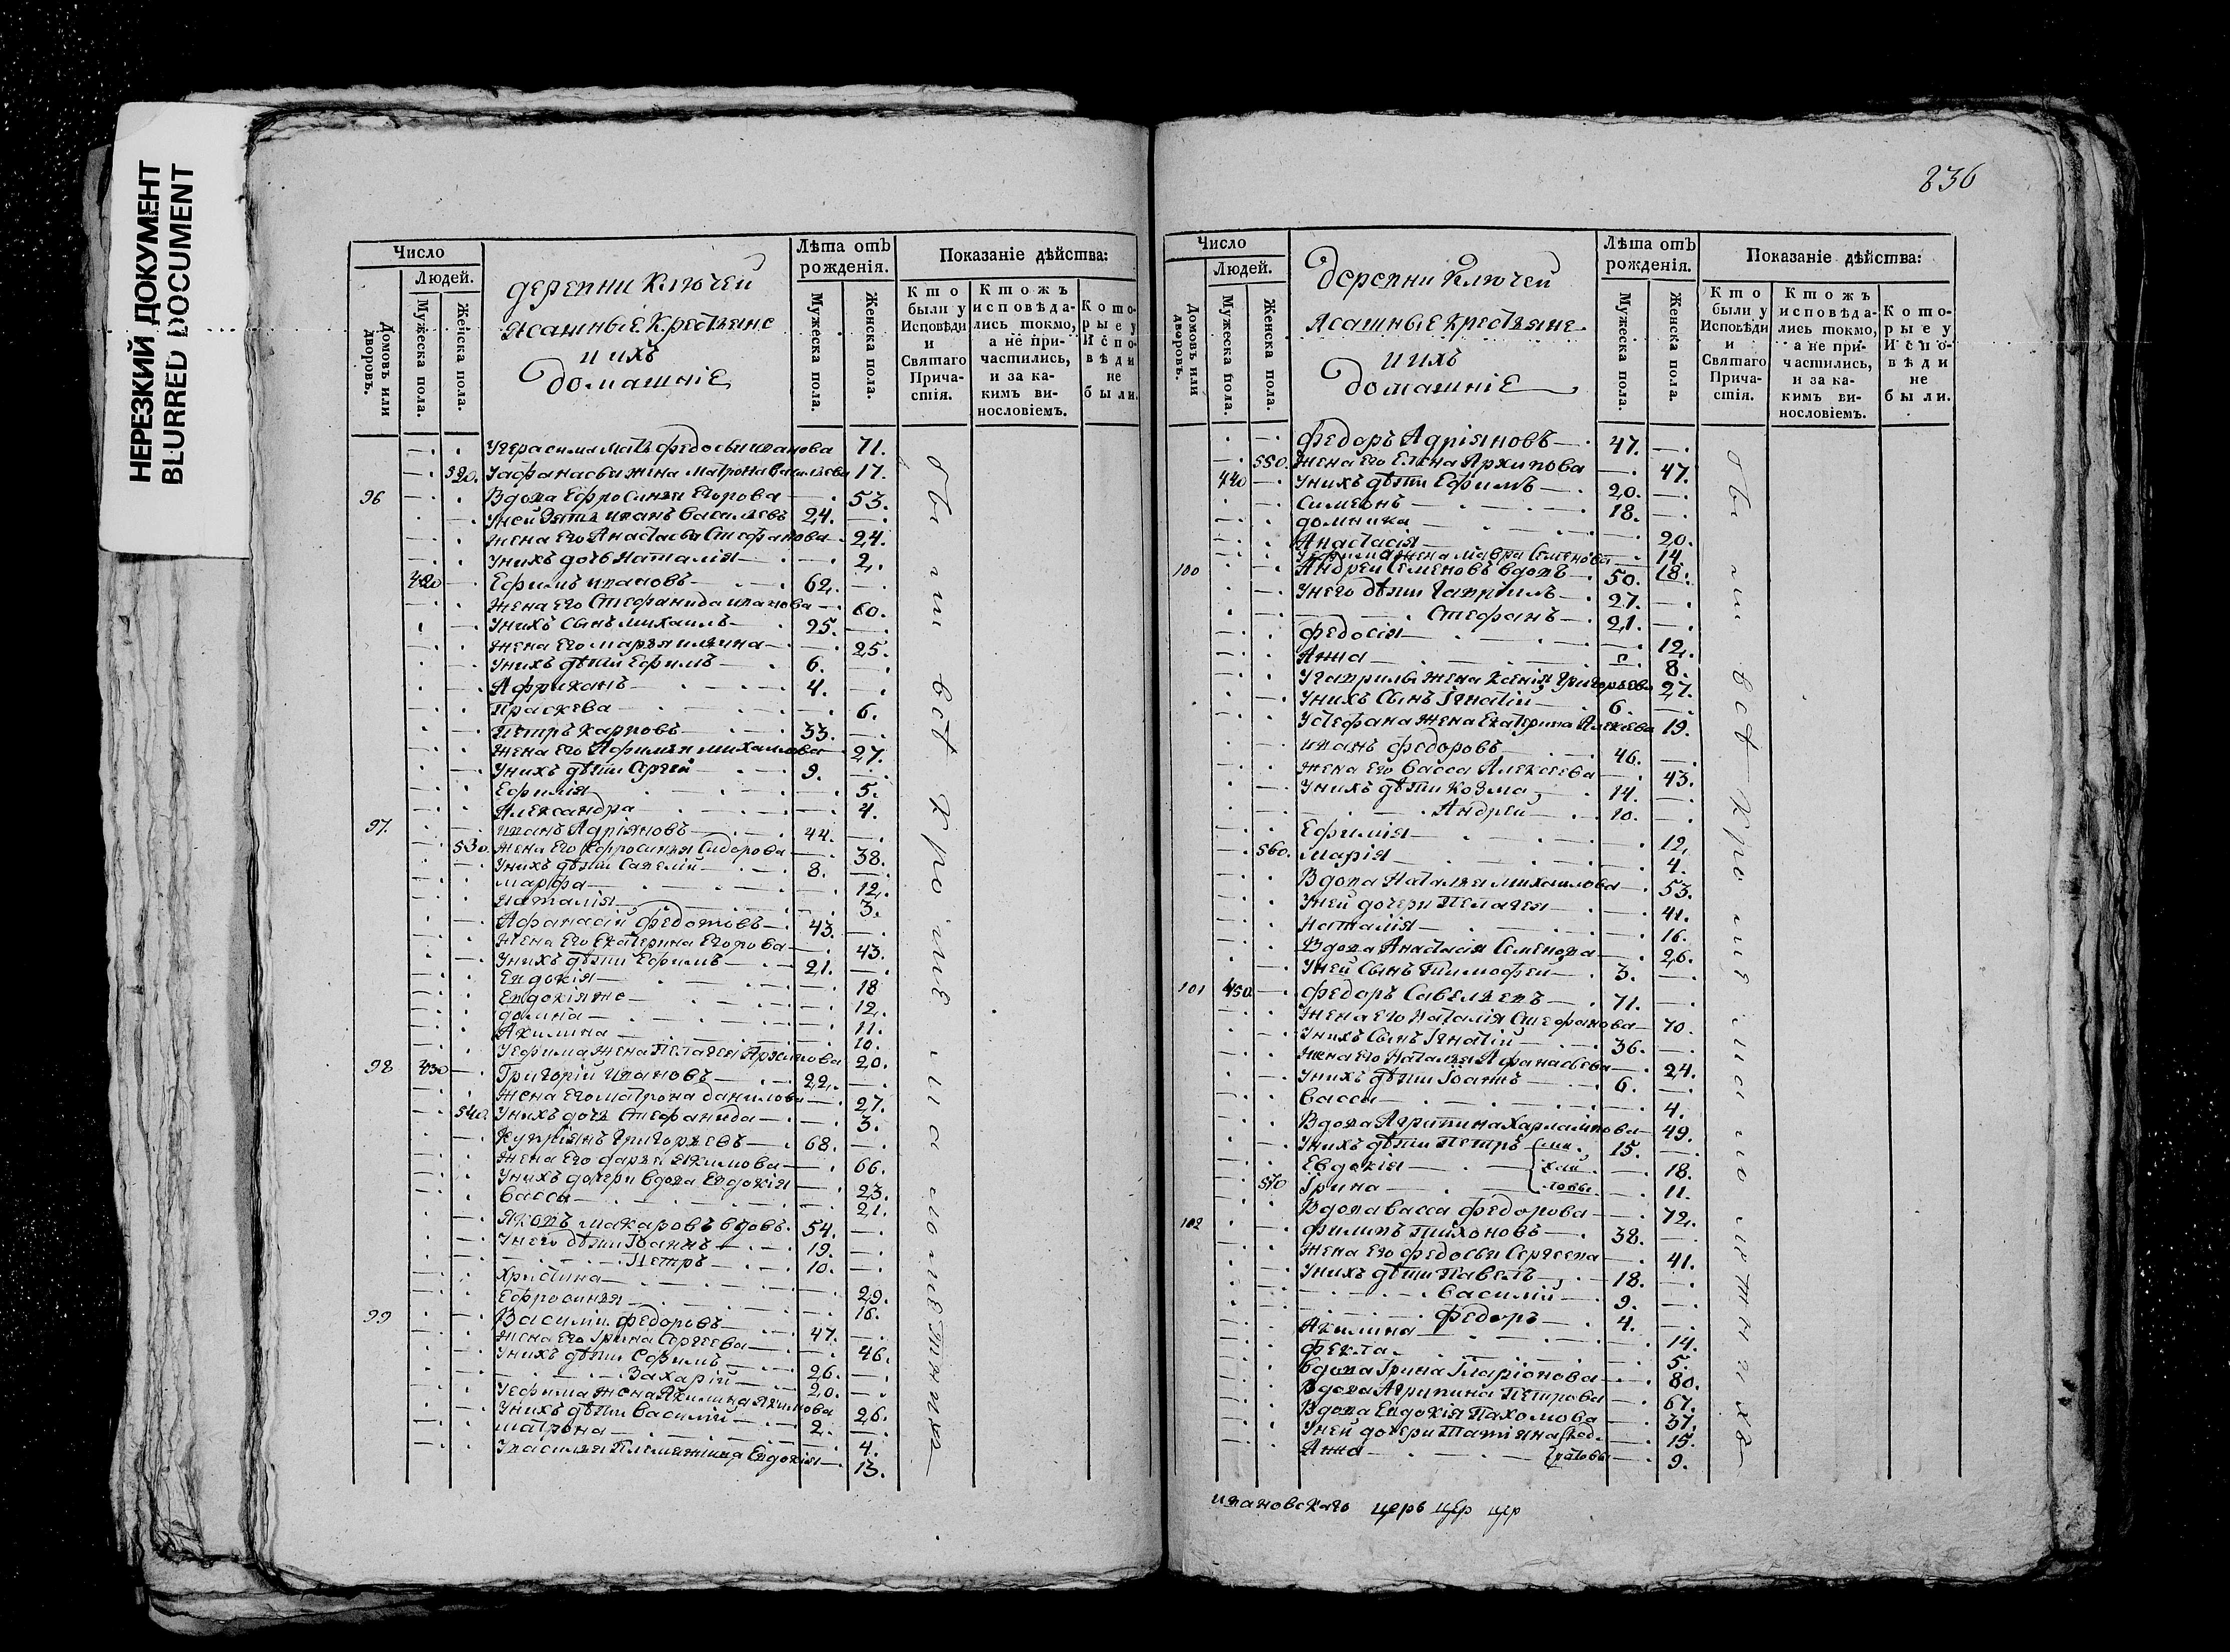 НЕРЕЗКИЙ ДОКУМЕНТ
BLURRED DOCUMENT
Число
Людей.
Домовъ или дворовъ.
Мужеска пола.
Женска пола.
деревни Ключей
Ясашные Крестьяне
и ихъ
домашніе
Лѣта отъ рожденія.
Мужеска пола.
Женска пола.
Показаніе дѣйства:
Кто были у Исповѣди и Святаго Причастія.
Ктожъ исповѣдались токмо, а не причастились, и за какимъ винословіемъ.
Которые у Исповѣди не были.
У герасима мать федосья иванова 71.
520. У афанасья жена матрона васильева 17.
96 Вдова Ефросинья Егорова 53.
У ней зять иванъ васильевъ 24.
Жена Его Анастасья Стефанова 24.
У нихъ дочь наталія 2.
420 Ефимъ ивановъ 62.
Жена Его Стефанида иванова 60.
У нихъ сынъ михаилъ 25.
Жена Его марья ильина 25.
У нихъ дѣти Ефимъ 6.
Африканъ 4.
Праскева 6.
Петръ карповъ 33.
Жена Его Афимья михаилова 27.
У нихъ дѣти Сергей 9.
Ефимія 5.
Александра 4.
97. иванъ Адріяновъ 44.
530. Жена Его Ефросинья Сидорова 38.
У нихъ дѣти Савелій 8.
марфа 12.
наталія 3.
Афанасій федотовъ 43.
Жена Его Екатерина Егорова 43.
У нихъ дѣти Ефимъ 21.
Евдокія 18
Евдокія же 12.
домна 11.
Акилина 10.
У ефима жена Пелагея Архипова 20.
98 430 Григорій Ивановъ 22.
Жена Его матрона данилова 27.
540. У нихъ дочь Стефанида 3.
Купріянъ Григорьевъ 68.
Жена Его дарья якимова 66.
У нихъ дочери вдова Евдокія 23.
Васса 21.
Яковъ макаровъ вдовъ. 54.
У него дѣти Іоаннъ 19.
Петръ 10.
Христина 29.
Ефросинья 16.
99 Василій федоровъ 47.
Жена Его Ірина Сергеева 46.
У нихъ дѣти Ефимъ 26.
Захарій 20.
У ефима жена Акилина якимова 26.
У нихъ дѣти Василій 2.
матрона 4.
У василья племянница Евдокія 13.
были всѣ
836
Число
Людей.
Домовъ или дворовъ.
Мужеска пола.
Женска пола.
деревни Ключей
Ясашные крестьяне
и ихъ
домашніе
Лѣта отъ рожденія.
Мужеска пола.
Женска пола.
Показаніе дѣйства:
Кто были у Исповѣди и Святаго Причастія.
Ктожъ исповѣдались токмо, а не причастились, и за какимъ винословіемъ.
Которые у Исповѣди не были.
федоръ Адріяновъ 47.
550. Жена Его Елена Архипова 47.
440 У нихъ дѣти Ефимъ 20.
Симеонъ 18.
домника 20.
Анастасія 14.
У ефима жена мавра Семенова 18.
100 Андрей Семеновъ вдовъ 50.
У него дѣти Гавріилъ 27.
Стефанъ 21.
федосія 12.
Анна 8.
У гаврилы жена Ксенія Григорьева 27.
У нихъ сынъ Ігнатій 6.
У стефана жена Екатерина Алексеева 19.
иванъ федоровъ 46.
Жена Его Васса Алексеева 43.
У нихъ дѣти козма 14.
Андрей 10.
Ефимія 12.
560. марія 4.
Вдова Наталья михаилова 53.
У ней дочери Пелагея 41.
наталія 16.
Вдова Анастасія Семенова 26.
У ней сынъ Тимофей 3.
101 450 федоръ Савельевъ 71.
Жена Его Наталія Стефанова 70.
У нихъ сынъ Ігнатій 36.
Жена Его Наталья Афанасьева 24.
У нихъ дѣти Іоаннъ 6.
Васса 4.
Вдова Агрипина Харлампова 49.
У нихъ дѣти Петръ 15.
Евдокія 18.
570 Ірина 11.
Вдова васса федорова 72.
102 филипъ тихоновъ 38.
Жена Его федосья Сергеева 41.
У нихъ дѣти Павелъ 18.
Василій 9.
федоръ 4.
Акилина 14.
фекла 5.
Вдова Ірина Іларіонова 80.
Вдова Агрипина Петрова 67.
Вдова Евдокія Пахомова 37.
У ней дочери Татіяна 15.
Анна 9.
были всѣ
ивановскаго церь цер цер